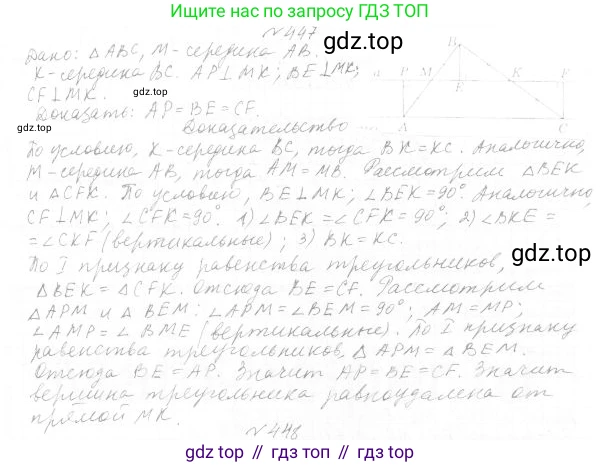 Ищите нас по запросу ГДЗ ТОП
№ 447
Дано: △ABC, M - середина AB.
K - середина BC. AP⊥MK; BE⊥MK;
CF⊥MK.
Доказать: AP = BE = CF.
gdz.top
a P M B E K F
A C
Доказательство
gdz.top
По условию, K - середина BC, тогда BK = KC. Аналогично,
M - середина AB, тогда AM = MB. Рассмотрим △BEK
и △CFK. По условию, BE⊥MK; ∠BEK = 90°. Аналогично,
CF⊥MK; ∠CFK = 90°. 1) ∠BEK = ∠CFK = 90°; 2) ∠BKE =
= ∠CKF (вертикальные); 3) BK = KC.
gdz.top
По I признаку равенства треугольников,
△BEK = △CFK. Отсюда BE = CF. Рассмотрим
△APM и △BEM: ∠APM = ∠BEM = 90°; AM = MP;
∠AMP = ∠BME (вертикальные). По I признаку
равенства треугольников, △APM = △BEM.
Отсюда BE = AP. Значит AP = BE = CF. Значит
вершина треугольника равноудалена от
прямой MK.
№ 448
gdz.top // gdz.top // gdz.top